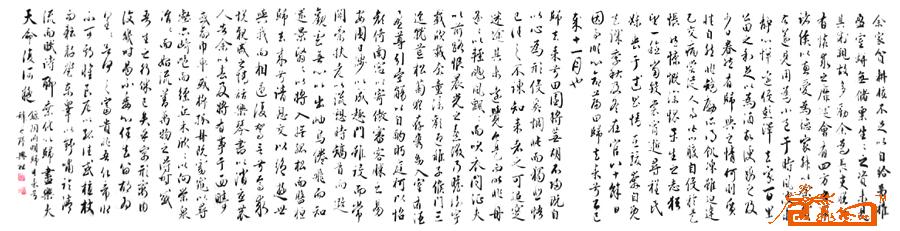 余家貧耕植不足以自給幼稚
盈室缾無儲粟生生所資未見
其術親故多勸余為長吏脫然
有懷求之靡途會有四方之事
諸侯以惠愛為德家叔以余貧
苦遂見用於小邑於時風波未
靜心憚遠役彭澤去家百里
公田之利足以為酒故便求之及
少日眷然有歸歟之情何則質
性自然非矯厲所得飢凍雖切違
己交病嘗從人事皆口腹自役於是
悵然慷慨深愧平生之志猶
望一稔當斂裳宵逝尋程氏
妹喪于武昌情在駿奔自免
去職仲秋至冬在官八十餘日
因事順心命篇曰歸去來兮乙巳
歲十一月也
歸去來兮田園將蕪胡不歸既自
以心為形役奚惆悵而獨悲悟
已往之不諫知來者之可追實
迷途其未遠覺今是而昨非舟
遙遙以輕颺風飄飄而吹衣問征夫
以前路恨晨光之熹微乃瞻衡宇
載欣載奔僮僕歡迎稚子候門三
徑就荒松菊猶存攜幼入室有酒
盈樽引壺觴以自酌眄庭柯以怡
顏倚南窗以寄傲審容膝之易
安園日涉以成趣門雖設而常
關策扶老以流憩時矯首而遐
觀雲無心以出岫鳥倦飛而知
還景翳翳以將入撫孤松而盤桓
歸去來兮請息交以絕遊世
與我而相違復駕言兮焉求
悅親戚之情話樂琴書以消憂農
人告余以春及將有事于西疇
或命巾車或棹孤舟既窈窕以尋
壑亦崎嶇而經丘木欣欣以向榮泉
涓涓而始流善萬物之得時感
吾生之行休已矣乎寓形宇內
復幾時曷不委心任去留胡為
遑遑欲何之富貴非吾願帝鄉
不可期懷良辰以孤往或植杖
而耘耔登東皋以舒嘯臨清
流而賦詩聊乘化以歸盡樂夫
天命復奚疑
錄陶淵明歸去來兮
辭